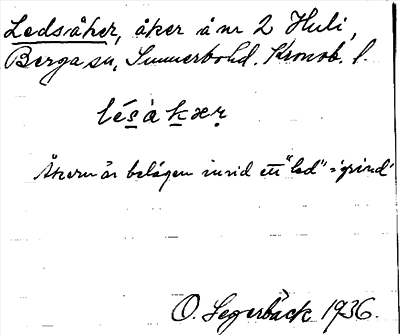 Ledsåker, åker å nr 2 Huli,
Berga sn, Sunnerbo hd. Kronob. l.
lésàkær
Åkern är belägen invid ett "led" = 'grind'
O. Segerbäck 1936.